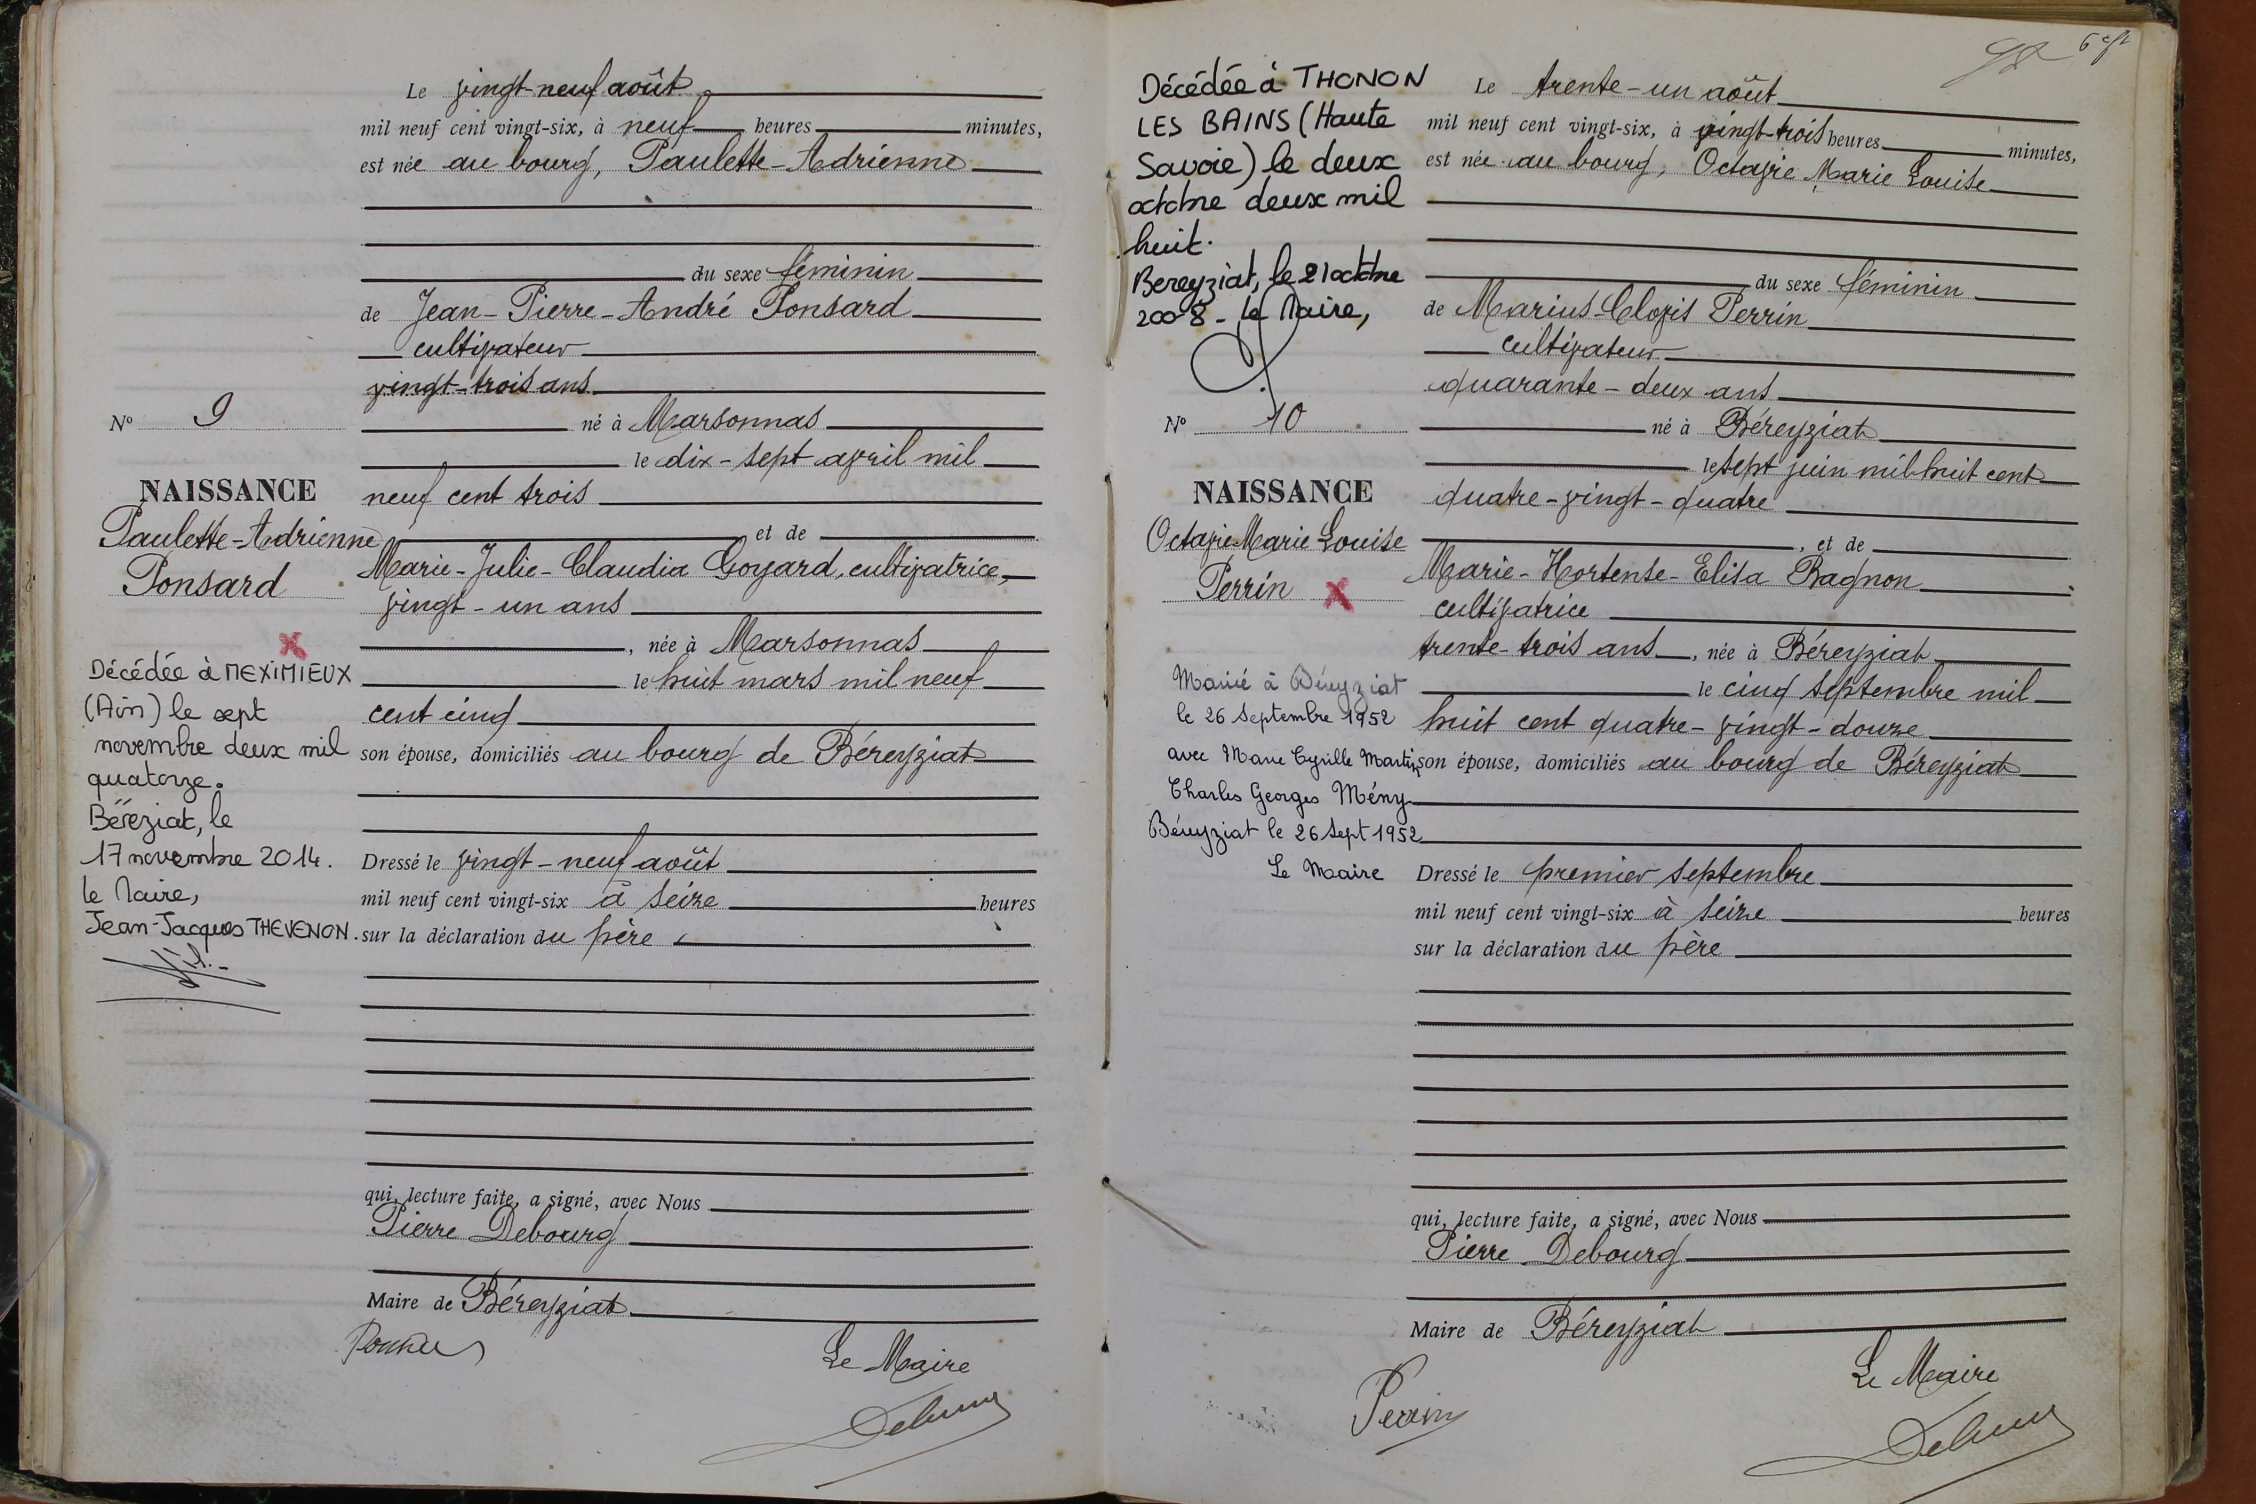 Le vingt-neuf août
mil neuf cent vingt-six, à neuf heures minutes,
est née au bourg, Paulette-Adrienne
du sexe féminin
de Jean-Pierre-André Ponsard
cultivateur
vingt-trois ans
né à Marsonnas
le dix-sept avril mil
neuf cent trois
et de
Marie-Julie-Claudia Goyard, cultivatrice,
vingt-un ans
, née à Marsonnas
le huit mars mil neuf
cent cinq
son épouse, domiciliés au bourg de Béreyziat
Dressé le vingt-neuf août
mil neuf cent vingt-six à seize heures
sur la déclaration du père
qui, lecture faite, a signé, avec Nous
Pierre Debourg
Maire de Béreyziat
Le Maire
No 9
NAISSANCE
Paulette-Adrienne
Ponsard
Décédée à MEXIMIEUX
(Ain) le sept
novembre deux mil
quatorze.
Béreziat, le
17 novembre 2014.
le Maire,
Jean-Jacques THEVENON.
Décédée à THONON
LES BAINS (Haute
Savoie) le deux
octobre deux mil
huit.
Bereyziat, le 21 octobre
2008 - le Maire,
No 10
NAISSANCE
Octavie Marie Louise
Perrin
Mariée à Béreyziat
le 26 Septembre 1952
avec Marie Cyrille Martin
Charles Georges Mény
Béreyziat le 26 Sept 1952
Le Maire
Le trente-un août
mil neuf cent vingt-six, à vingt-trois heures minutes,
est née au bourg, Octavie Marie Louise
du sexe féminin
de Marius-Clovis Perrin
cultivateur
quarante-deux ans
né à Béreyziat
le sept juin mil huit cent
quatre-vingt-quatre
, et de
Marie-Hortense-Elisa Bagnon
cultivatrice
trente-trois ans, née à Béreyziat
le cinq septembre mil
huit cent quatre-vingt-douze
son épouse, domiciliés au bourg de Béreyziat
Dressé le premier septembre
mil neuf cent vingt-six à seize heures
sur la déclaration du père
qui, lecture faite, a signé, avec Nous
Pierre Debourg
Maire de Béreyziat
Le Maire
Perrin